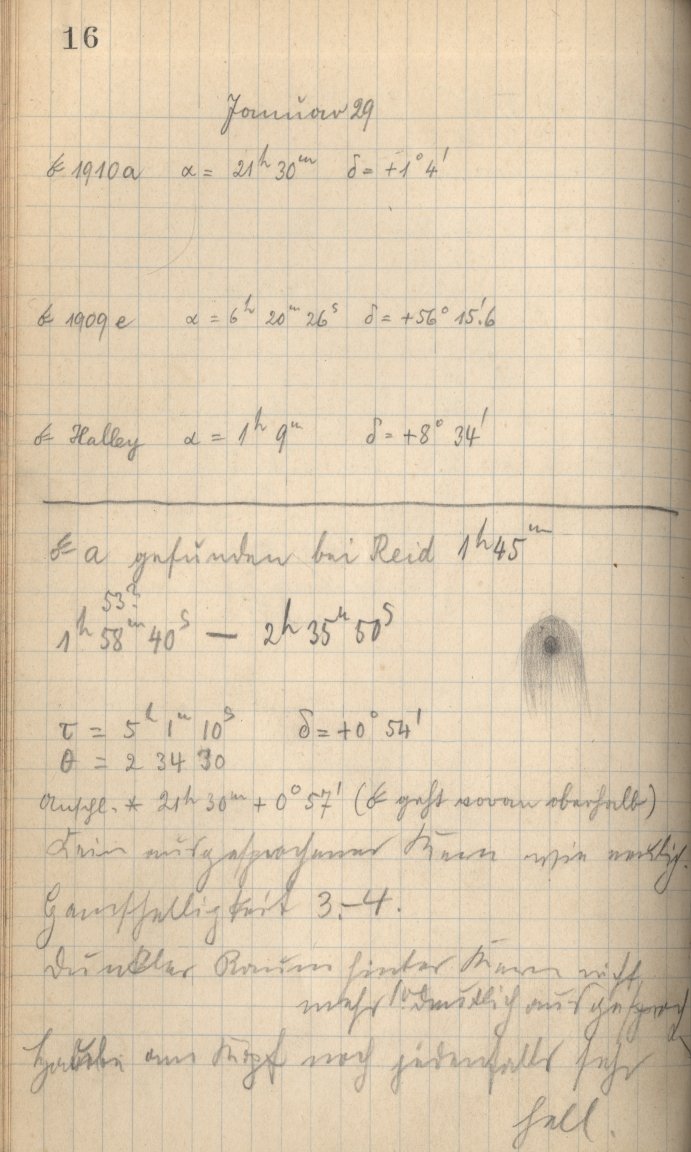 16
Januar 29
☄ 1910a α = 21ʰ 30ᵐ δ = +1° 4'
☄ 1909 e α = 6ʰ 20ᵐ 26ˢ δ = +56° 15.'6
☄ Halley α = 1ʰ 9ᵐ δ = +8° 34'
☄ a gefunden bei Reid 1ʰ 45ᵐ
53?
1ʰ 58ᵐ 40ˢ — 2ʰ 35ᵐ 50ˢ
τ = 5ʰ 1ᵐ 10ˢ δ = +0° 54'
θ = 2 34 30
Anschl. * 21ʰ 30ᵐ + 0° 57' (☄ geht voran oberhalb)
Kein ausgesprochener Kern wie neulich.
Gesamthelligkeit 3.–4.
Dunkler Raum hinter Kern nicht
mehr so deutlich ausgesproch
am Kopf noch jedenfalls sehr
hell.